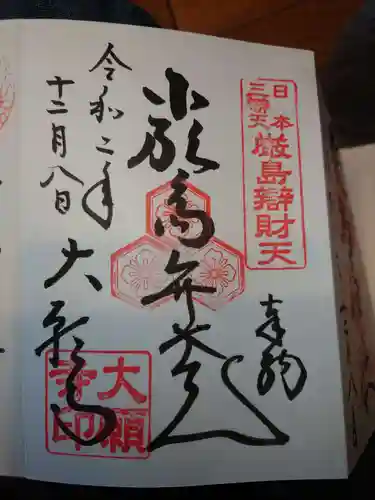 日本
三辯天
厳島辯財天
奉拝
厳島弁才天
令和二年
十二月八日
大願寺
大願
寺印